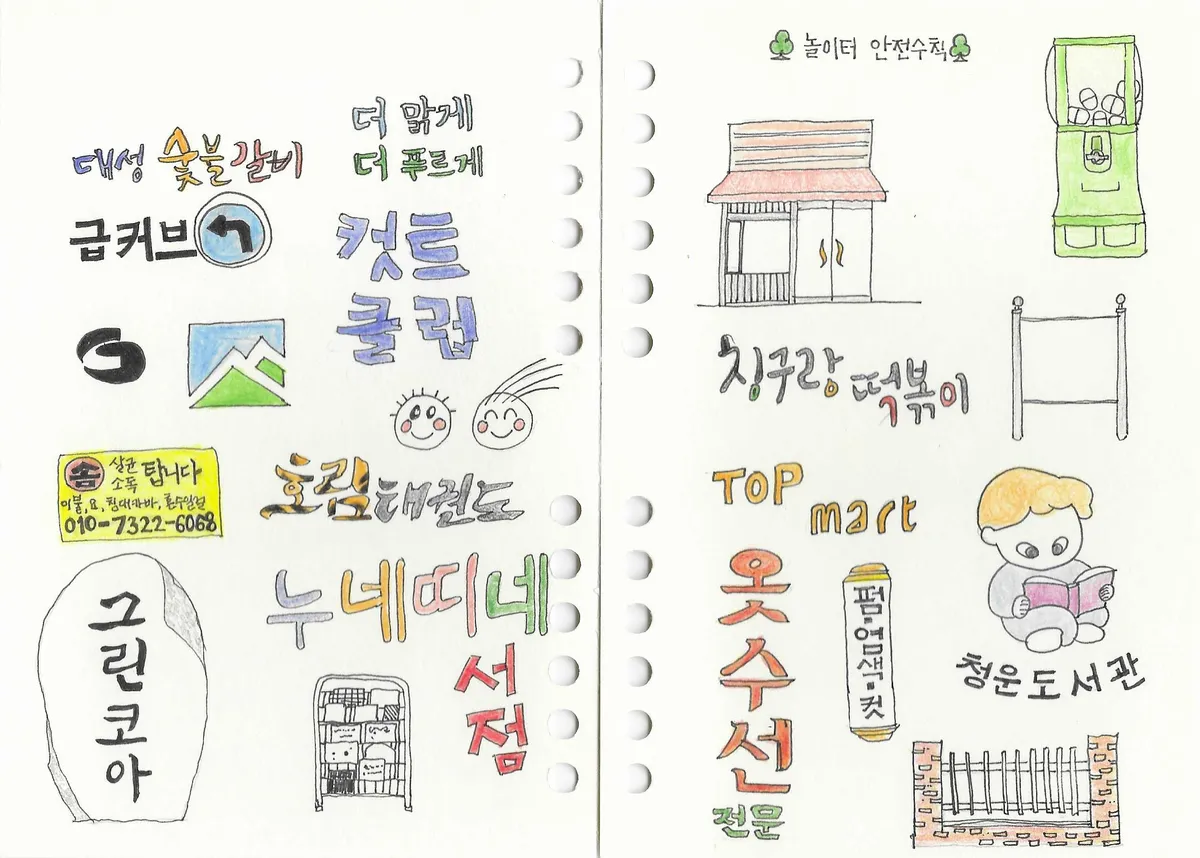 더 맑게
더 푸르게
대성 숯불갈비
급커브
컷트
클럽
솜 살균 소독 탑니다
이불, 요, 침대카바,
010-7322-6068
호림태권도
그린코아
누네띠네
서점
놀이터 안전수칙
칭구랑 떡볶이
TOP
mart
옷수선
전문
펌·염색·컷
청운도서관